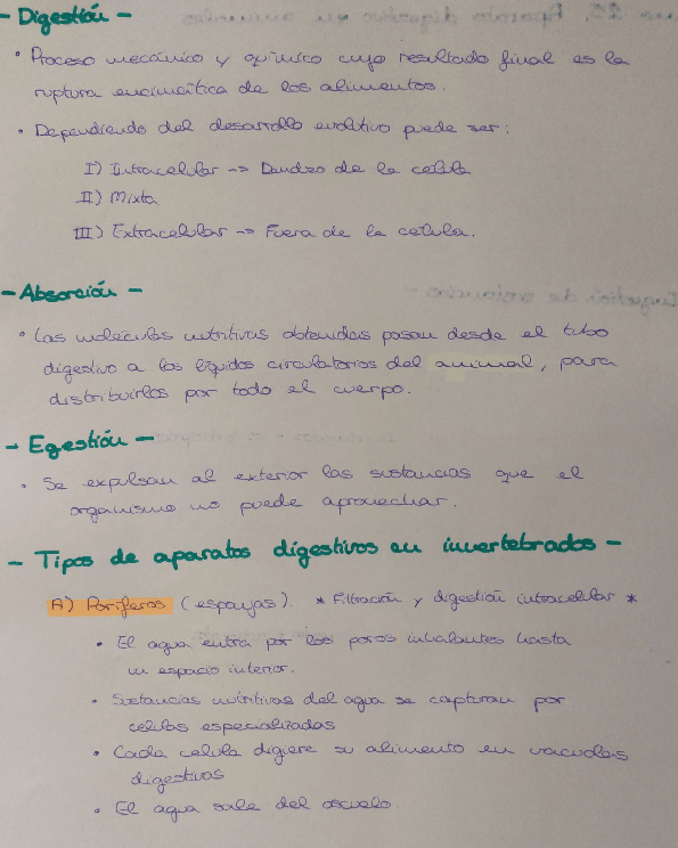 - Digestión -
• Proceso mecánico y químico cuyo resultado final es la
ruptura encimática de los alimentos.
• Dependiendo del desarrollo evolutivo puede ser:
I) Intracelular -> Dentro de la celula
II) Mixta
III) Extracelular -> Fuera de la celula.
- Absorción -
• Las moléculas nutritivas obtenidas pasan desde el tubo
digestivo a los líquidos circulatorios del animal, para
distribuirlos por todo el cuerpo.
- Egestión -
• Se expulsan al exterior las sustancias que el
organismo no puede aprovechar.
- Tipos de aparatos digestivos en invertebrados -
A) Poríferos (esponjas). * Filtración y digestión intracelular *
• El agua entra por los poros inhalantes hasta
un espacio interior.
• Sustancias nutritivas del agua se capturan por
celulas especializadas
• Cada celula digiere su alimento en vacuolas
digestivas
• El agua sale del osculo.